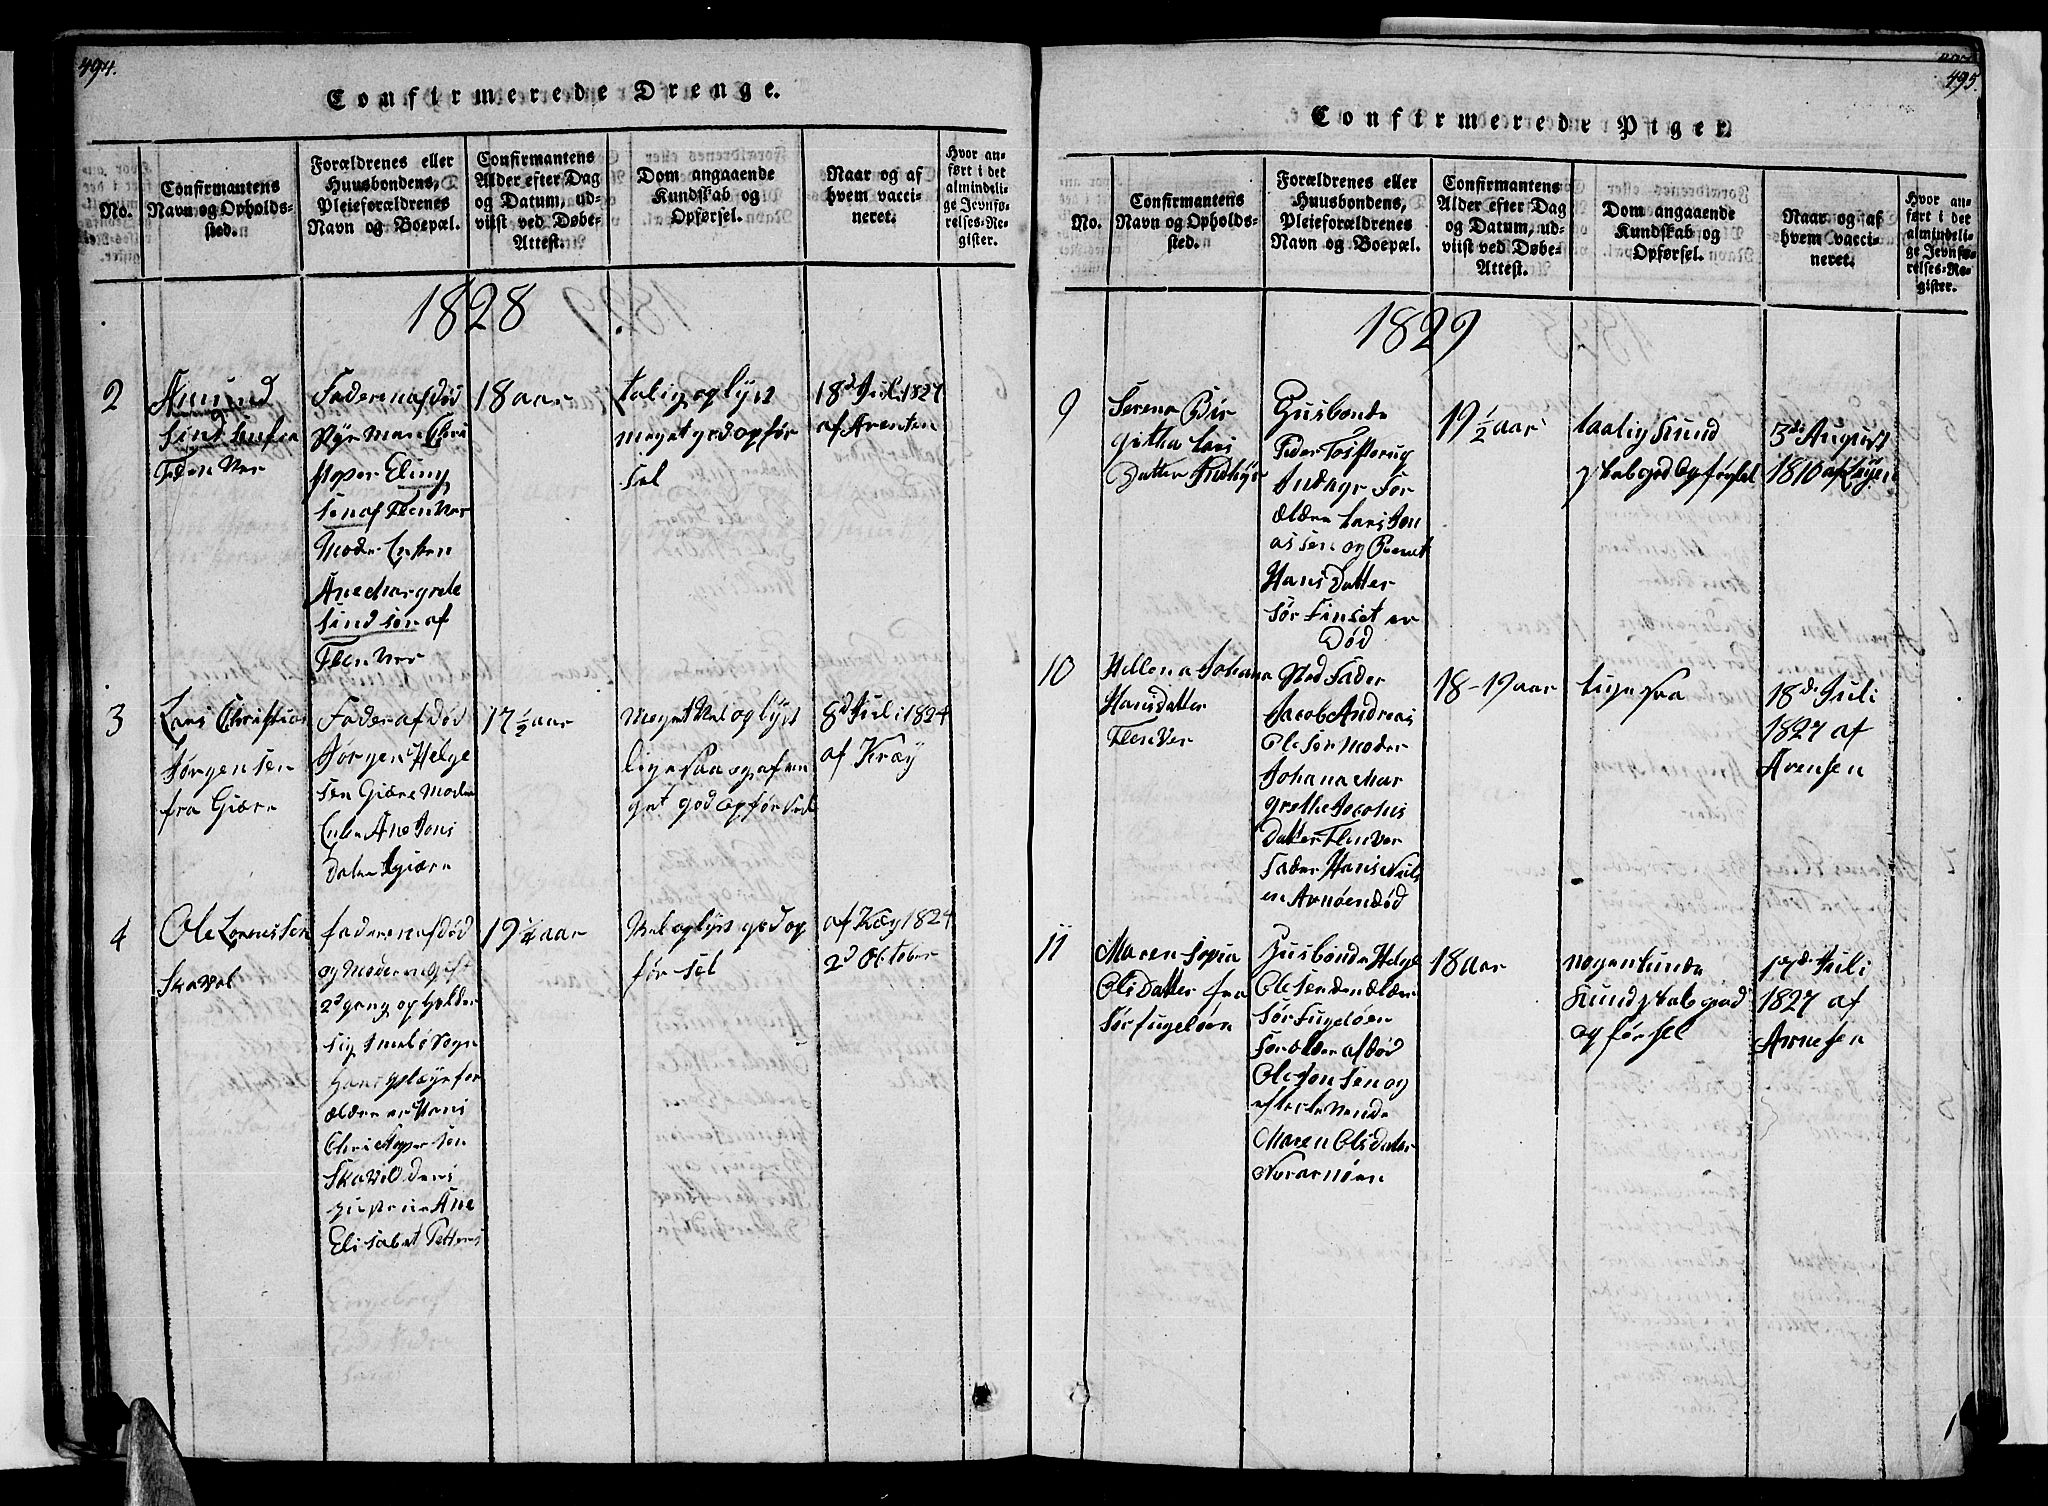 494.
Confirmerede Drenge.
No.
Confirmantens
Navn og Opholds-
sted.
Forældrenes eller
Huusbondens,
Pleieforældrenes
Navn og Boepæl.
Confirmantens
Alder efter Dag
og Datum, ud-
viist ved Døbe-
Attest.
Dom angaaende
Kundskab og
Opførsel.
Naar og af
hvem vacci-
neret.
Hvor an-
ført i det
almindeli-
ge Jevnfø-
relses-Re-
gister.
1828
2
Amund
Sindsen fra
Flenver
Faderen afdød
Styrman Chri
stoper Eling
sen af Flenver
Moder Enken
Ane Margrete
Sindsen af
Flenver
18 aar
talig oplyst
meget god opfør
sel
18d Juli 1827
af Arentsen
3
Lars Christian
Jørgensen
fra Giære
Fader afdød
Jørgen Helge
sen Giære Moder
Enke Ane Jons
Dater Giære
17 1/2 aar
Meget vel oplyst
ligesaa
get god opførsel
8d Juli 1824
af Kræy
4
Ole Lorentsen
Skavol
faderen afdød
og Moderen gift
2d gang og holder
sig
Hans Pleiefor
ældre er Hans
Christopersen
Skavol Deris
Ane
Elisabet Petters
19 1/4 aar
Vel oplyst god op
førsel
af Kræy 1824
2d October
495.
Confirmerede Piger.
No.
Confirmantens
Navn og Opholds-
sted.
Forældrenes eller
Huusbondens,
Pleieforældrenes
Navn og Boepæl.
Confirmantens
Alder efter Dag
og Datum, ud-
viist ved Døbe-
Attest.
Dom angaaende
Kundskab og
Opførsel.
Naar og af
hvem vacci-
neret.
Hvor an-
ført i det
almindeli-
ge Jevnfø-
relses-Re-
gister.
1829
9
Serena Bir
githa Lars
Datter Indhyr
Husbonde
Peder Tostrup
Indhyr For
ældre Lars Jon
assen og Berret
Hans Datter
Sør Finset er
Død
19 1/2 aar
taalig Kund
skab god Opførsel
3de August
1810 af
10
Hellena Johana
Hansdatter
Flenver
Sted Fader
Jacob Andreas
Olesen Moder
Johana Mar
grethe Jacobs
Datter Flenver
Fader Hans Niels
en Arnøen død
18-19 aar
ligesaa
18de Juli
1827 af
Arensen
11
Maren Sopia
Ols Datter fra
Sørfugeløen
Husbonde Helge
Olesen den ældre
Sørfugeløen
Forældre afdød
Ole Jonsen og
efterlevende
Maren Olsdater
Norarnøen
18 aar
nogenlunde
Kundskab god
opførsel
17de Juli
1827 af
Arnesen